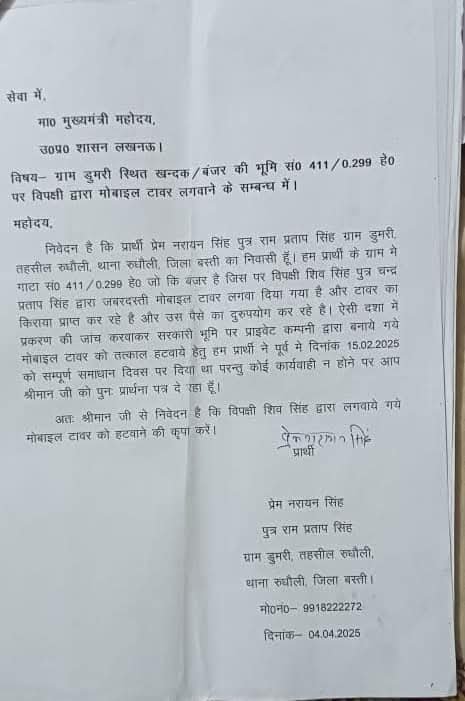 सेवा में,
मा० मुख्यमंत्री महोदय,
उ०प्र० शासन लखनऊ।
विषय– ग्राम डुमरी स्थित खन्दक/बंजर की भूमि सं० 411/0.299 हे०
पर विपक्षी द्वारा मोबाइल टावर लगवाने के सम्बन्ध में।
महोदय,
निवेदन है कि प्रार्थी प्रेम नरायन सिंह पुत्र राम प्रताप सिंह ग्राम डुमरी,
तहसील रुधौली, थाना रुधौली, जिला बस्ती का निवासी हूँ। हम प्रार्थी के ग्राम मे
गाटा सं० 411/0.299 हे० जो कि बंजर है जिस पर विपक्षी शिव सिंह पुत्र चन्द्र
प्रताप सिंह द्वारा जबरदस्ती मोबाइल टावर लगवा दिया गया है और टावर का
किराया प्राप्त कर रहे है और उस पैसे का दुरुपयोग कर रहे है। ऐसी दशा में
प्रकरण की जांच करवाकर सरकारी भूमि पर प्राइवेट कम्पनी द्वारा बनाये गये
मोबाइल टावर को तत्काल हटवाये हेतु हम प्रार्थी ने पूर्व मे दिनांक 15.02.2025
को सम्पूर्ण समाधान दिवस पर दिया था परन्तु कोई कार्यवाही न होने पर आप
श्रीमान जी को पुनः प्रार्थना पत्र दे रहा हूँ।
अतः श्रीमान जी से निवेदन है कि विपक्षी शिव सिंह द्वारा लगवाये गये
मोबाइल टावर को हटवाने की कृपा करें।
प्रेमनरायन सिंह
प्रार्थी
प्रेम नरायन सिंह
पुत्र राम प्रताप सिंह
ग्राम डुमरी, तहसील रुधौली,
थाना रुधौली, जिला बस्ती।
मो०नं०– 9918222272
दिनांक– 04.04.2025